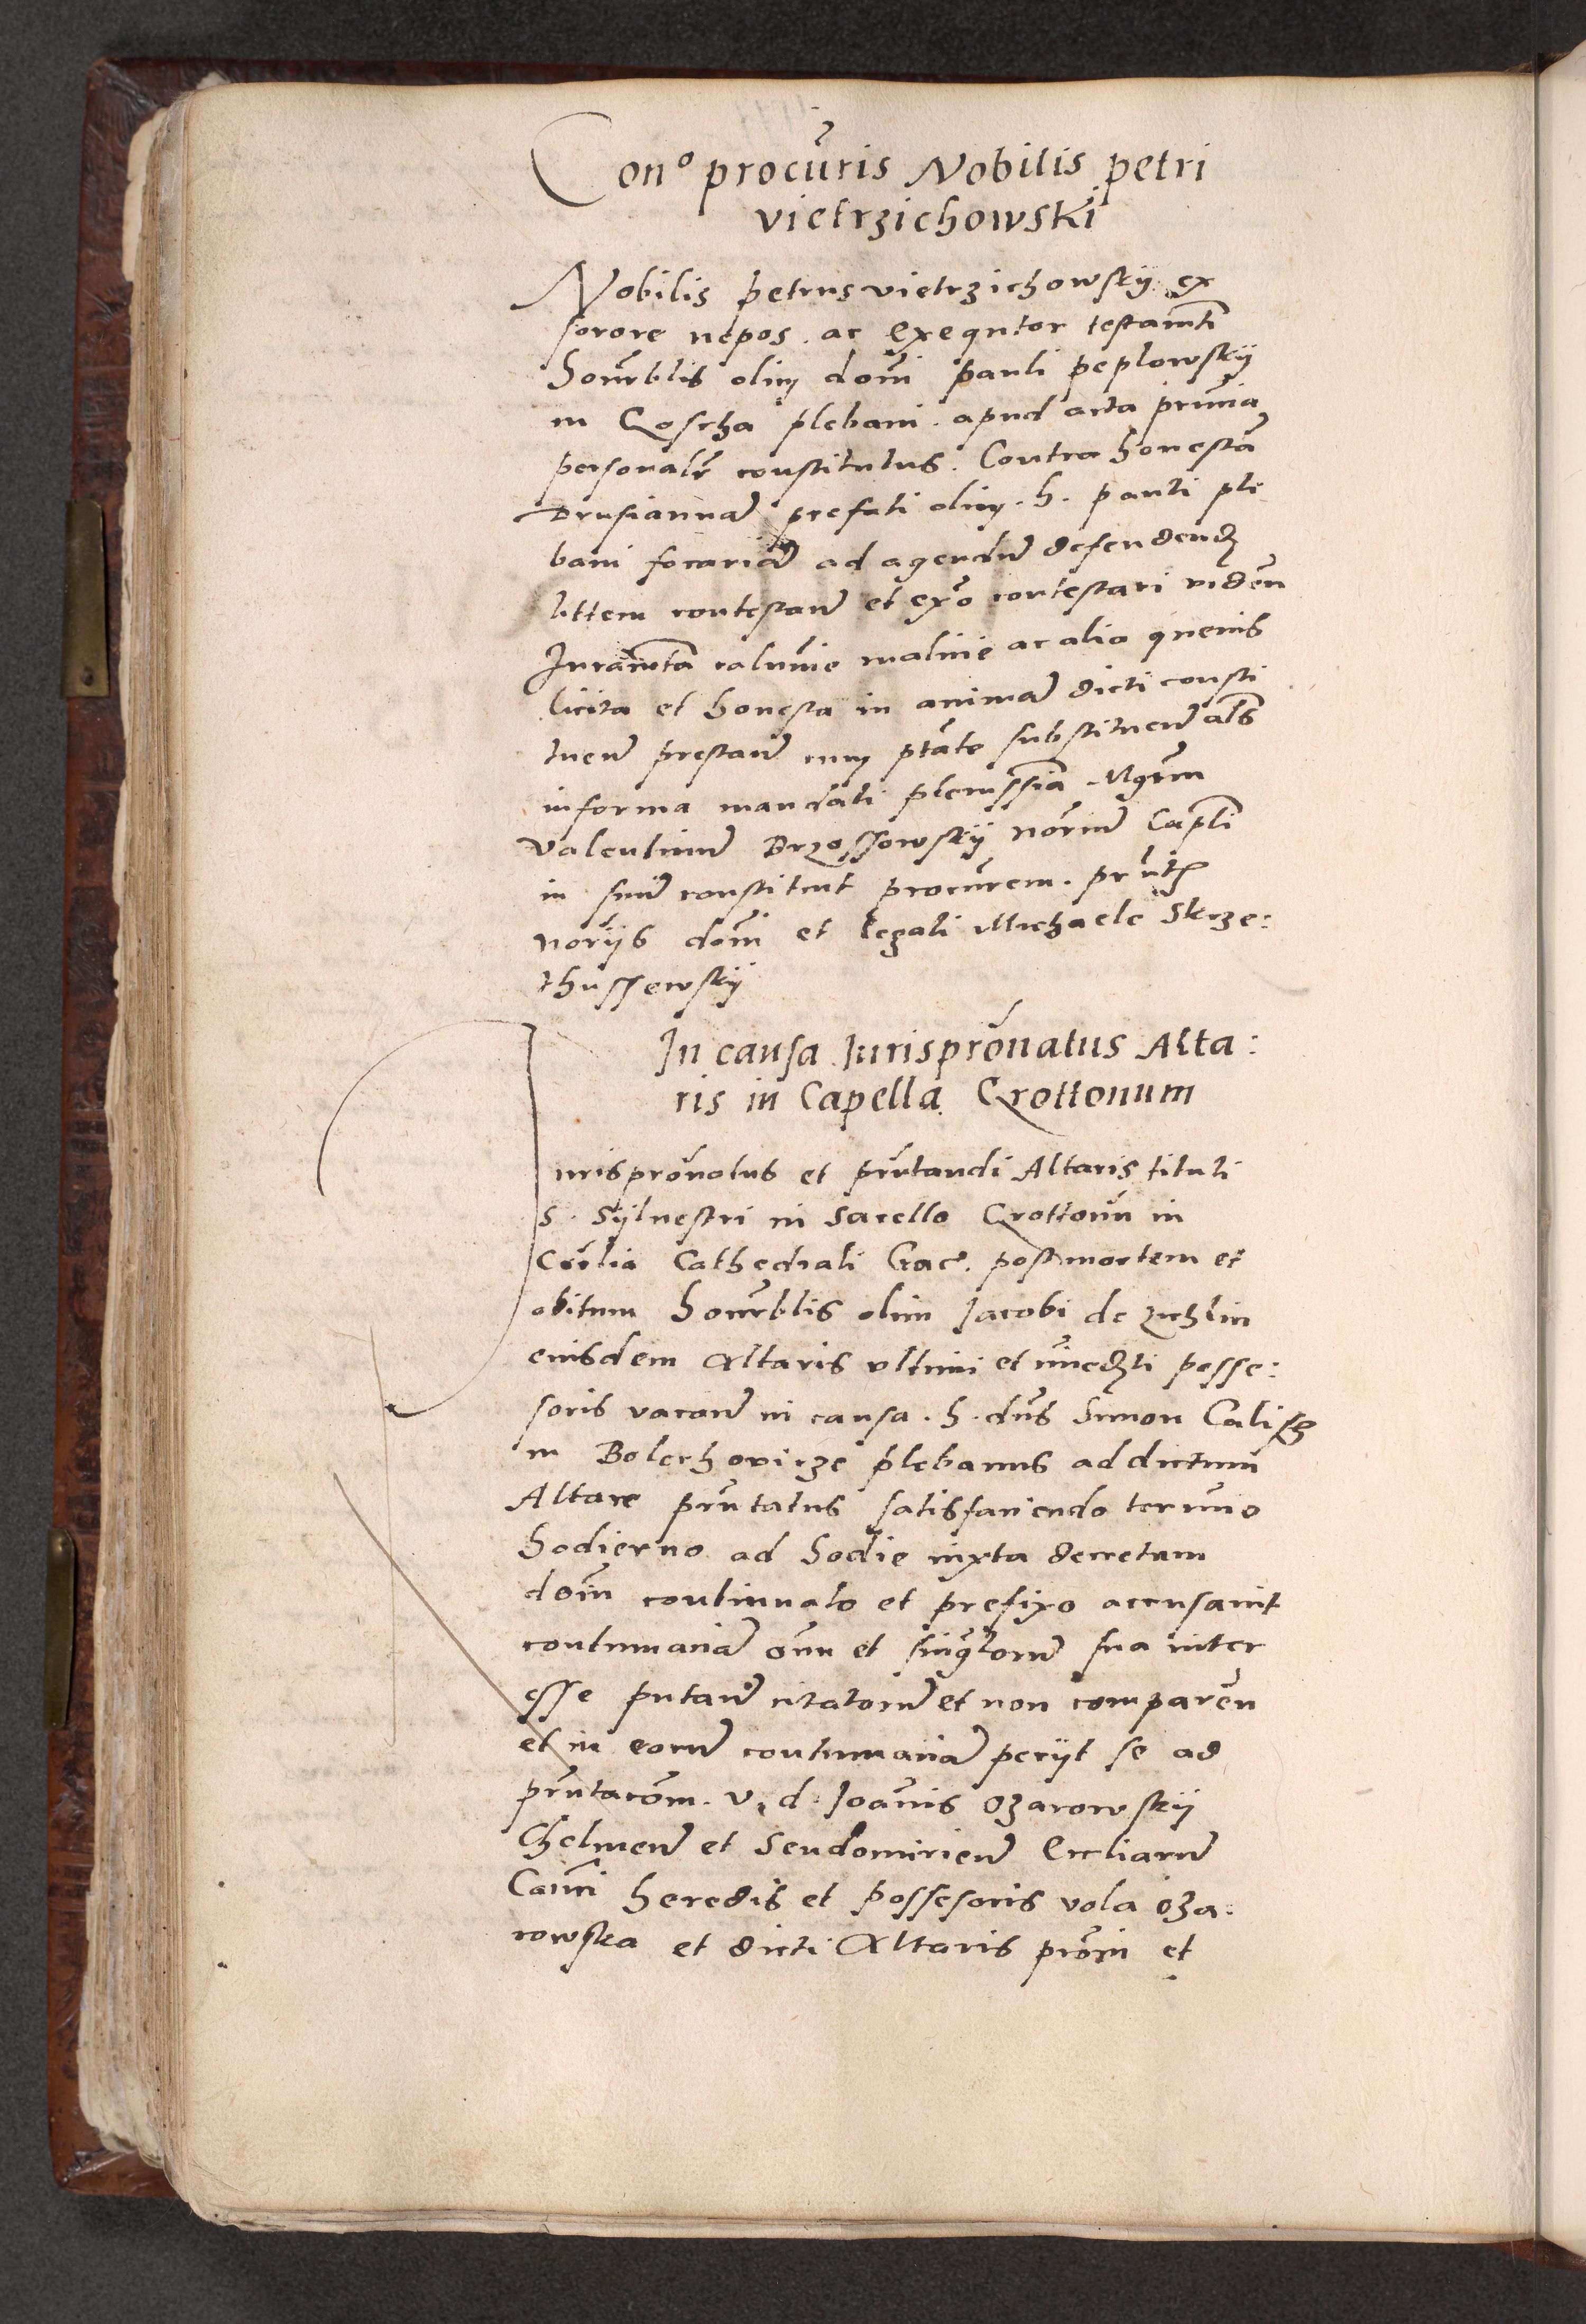 Con° procūris Nobilis petri
vietrzichowski
Nobilis petrus vietrzichowskij ex
sorore nepos . ac exequtor testamti
honorblis olim domī pauli peplowskij
in Coscha plebani . apud acta prnīa
personalr constitutus . Contra honestā
Drusiannā prefati olim . h . pauli ple
bani focariā ad agendū defendend
littem contestanď et exrō contestari viden
Juramta calumīe malicie ac alia quevis
licita et honesta in animā dicti consti
tuenď prestanď cum ptāte substituenď als
in forma mandati plenissīa . Mgrm
valentinū Brzossowskij nōriū Caplī
in suū constituit procūrem . prntƷ
norijs domī et legali Michaele Skrze:
thussewskij
In causa Jurisprōnatus Alta:
ris in Capella Crottonum
Jurisprōnatus et prntandi Altaris tituli
S . Sijlvestri in Sacello Crottonū in
Ecclīa Cathedrali Crac . post mortem et
obitum honorblis olim Jacobi de zichlin
eiusdem Altaris ultimi et imedti posse:
soris vacanď in causa . h . dns Simon Calisz
in Bolechovicze plebanus ad dictum
Altare prntatus satisfaciendo termīo
hodierno ad hodie iuxta decretum
domī continuato et prefixo accusavit
contumaciā omn et singlorū sua inter
esse putanď citatorū et non comparen
et in eorū contumaciā pecijt se ad
prntacōm . v . d . Joanis Ozarowskij
Chelmenď et Sendomirienď Eccliarū
Canci heredis et possesoris vola oza:
rowska et dicti Altaris prōni et